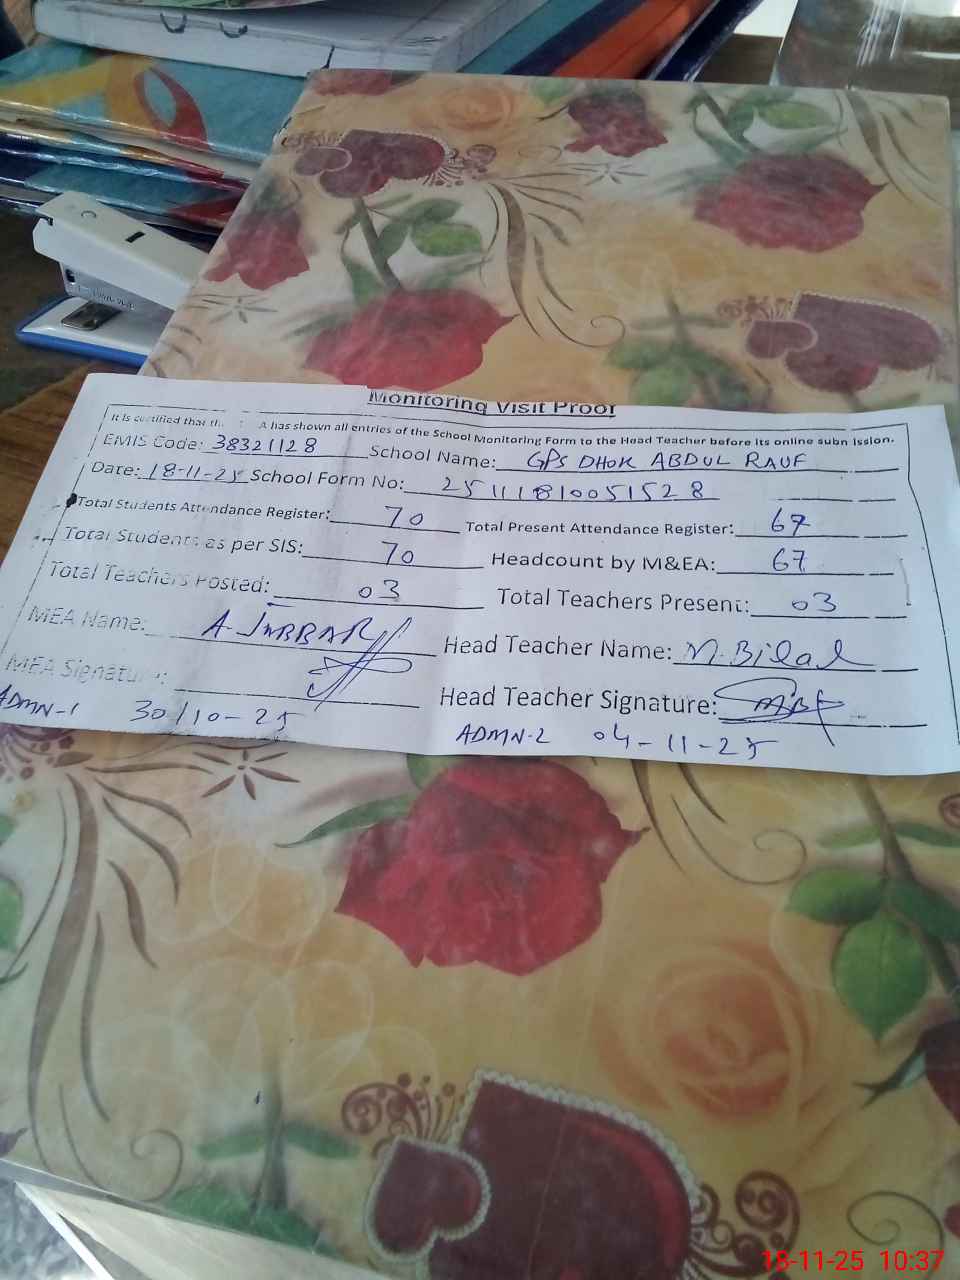 Monitoring Visit Proof
It is certified that the A has shown all entries of the School Monitoring Form to the Head Teacher before its online submission.
EMIS Code: 38321128 School Name: GPS DHOK ABDUL RAUF
Date: 18-11-25 School Form No: 25111810051528
Total Students Attendance Register: 70 Total Present Attendance Register: 67
Total Students as per SIS: 70 Headcount by M&EA: 67
Total Teachers Posted: 03 Total Teachers Present: 03
MEA Name: A. JABBAR Head Teacher Name: M. Bilal
MEA Signature: Head Teacher Signature:
ADMN-1 30/10-25 ADMN-2 04-11-25
18-11-25 10:37